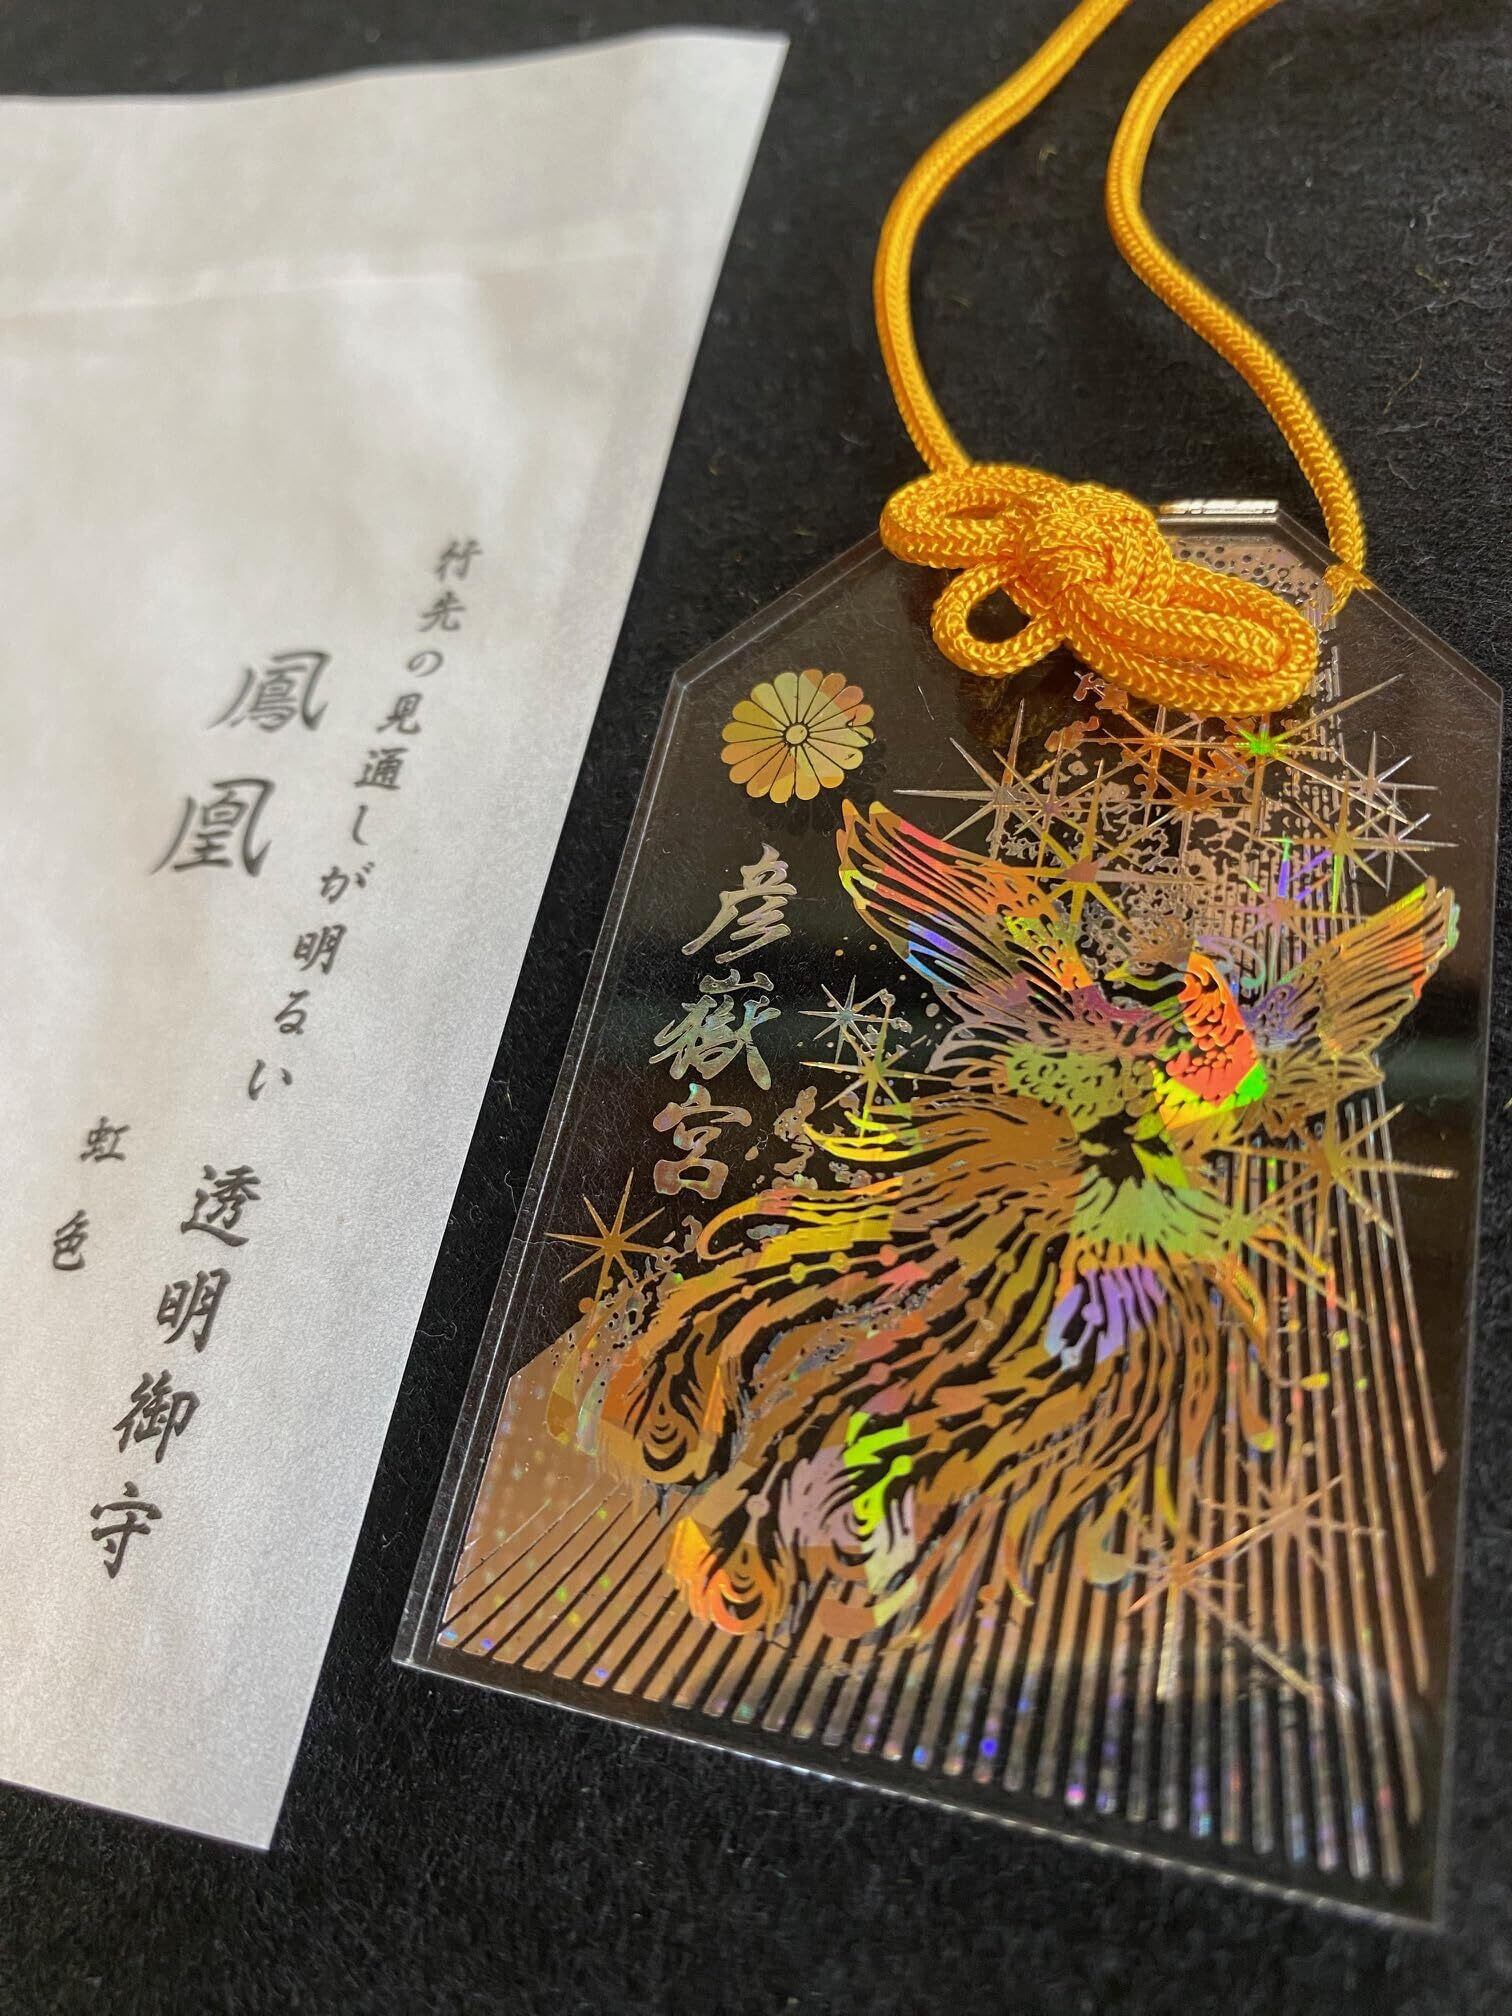 行先の見通しが明るい
鳳凰
透明御守
虹色
彦嶽宮